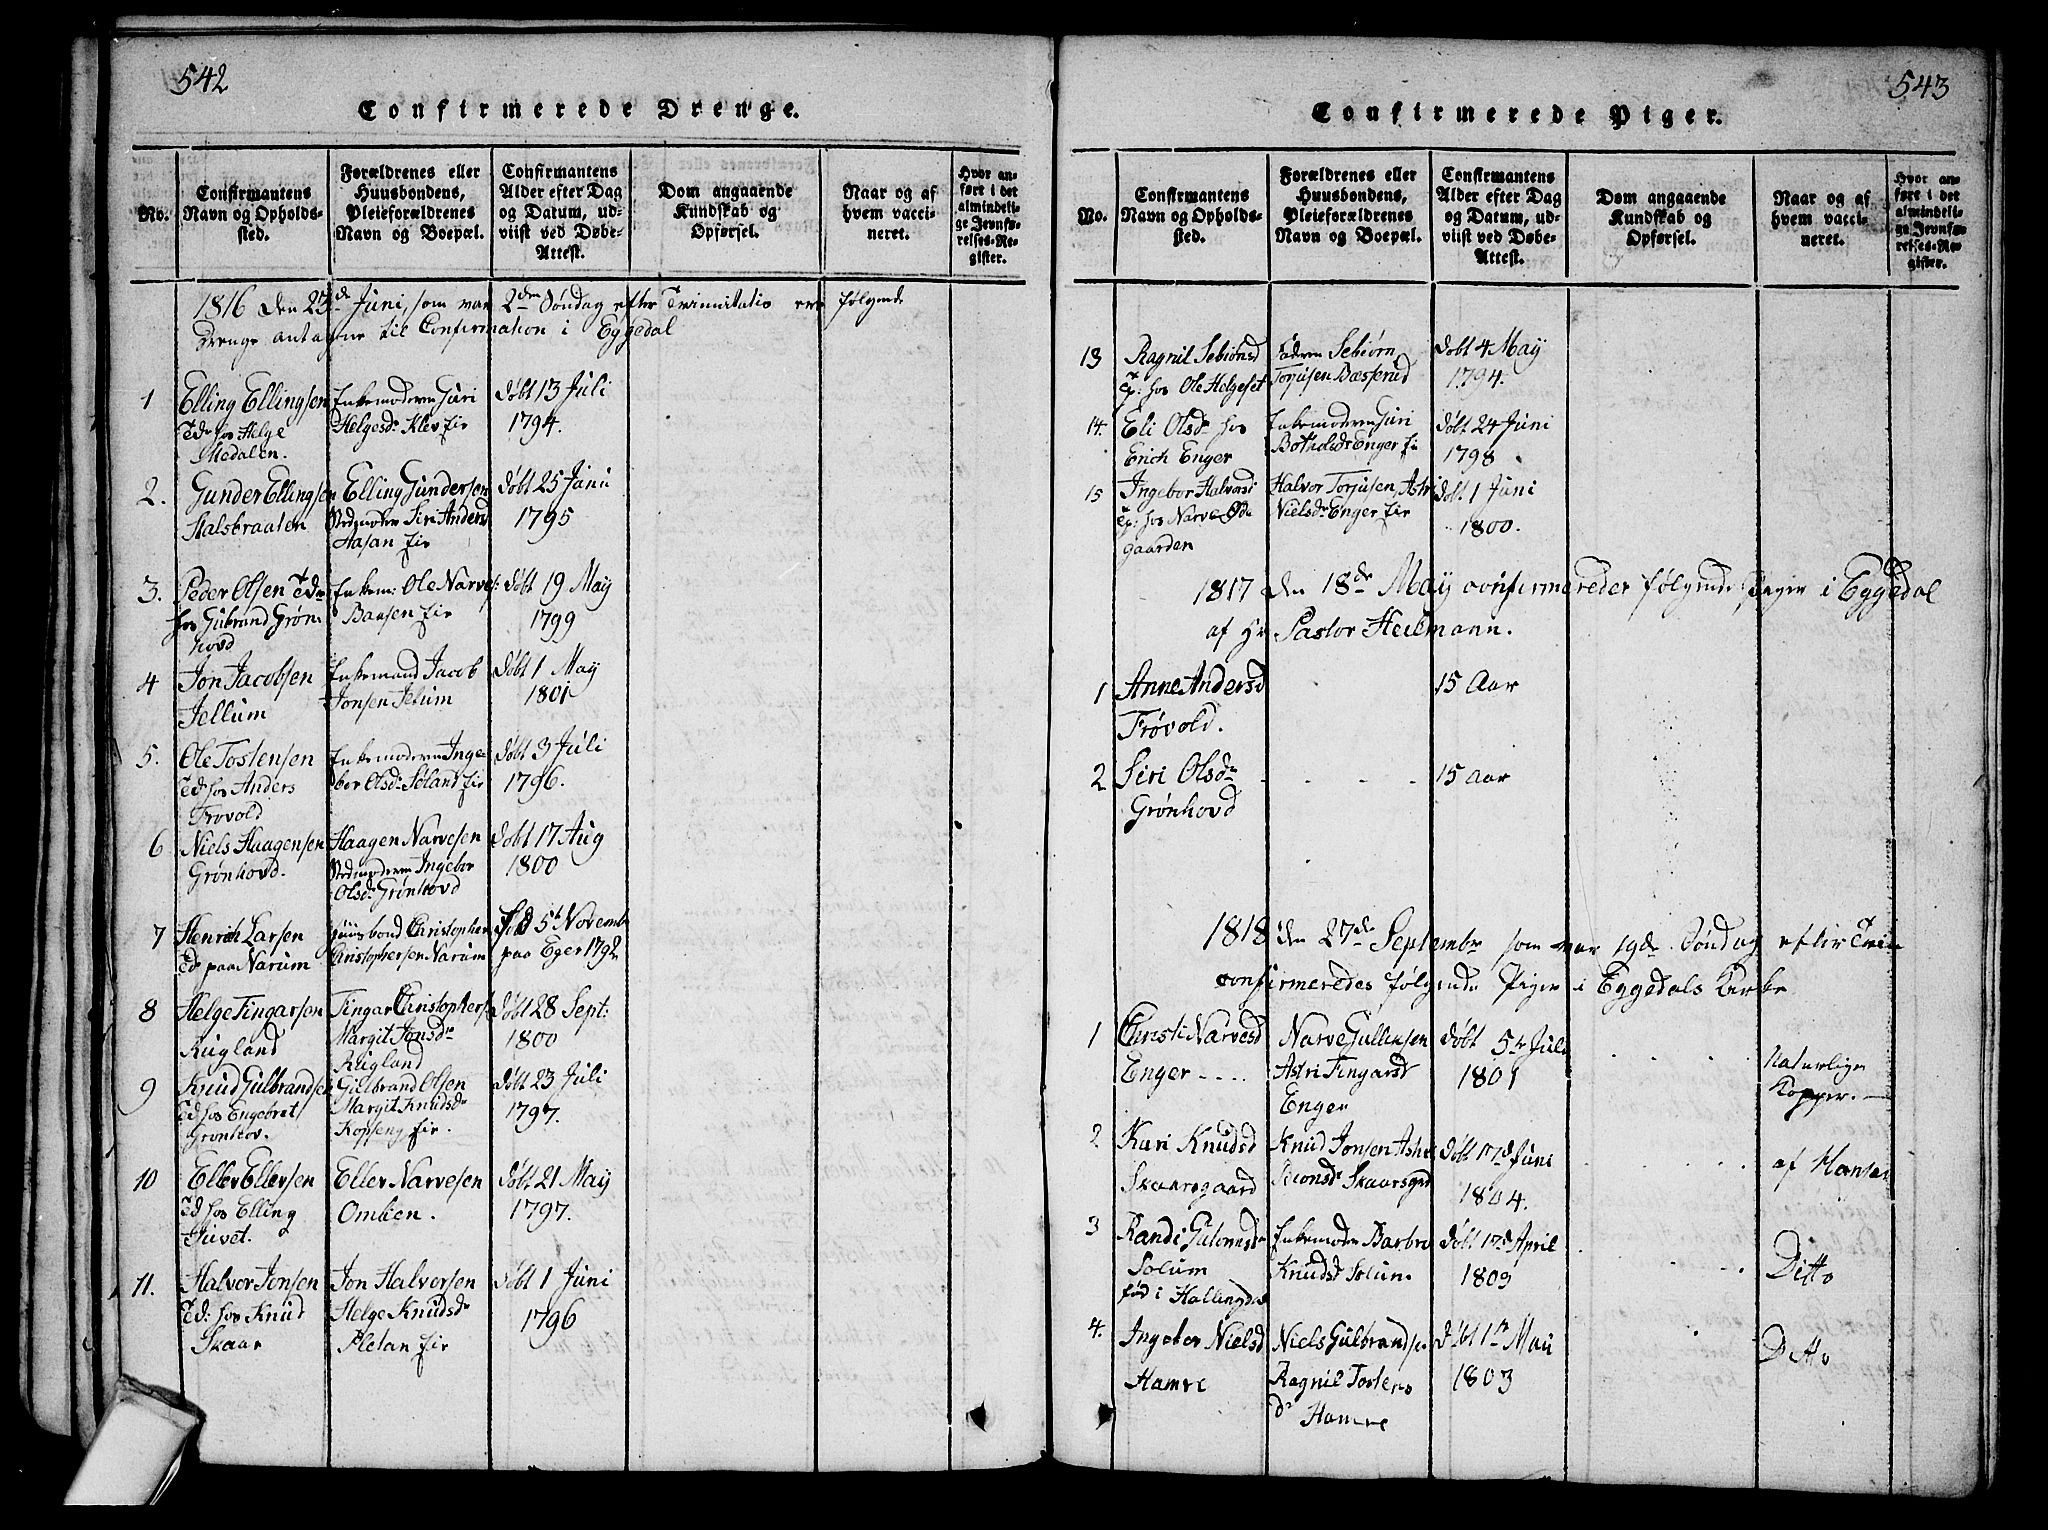 542
Confirmerede Drenge.
No.
Confirmantens
Navn og Opholds-
sted.
Forældrenes eller
Huusbondens,
Pleieforældrenes
Navn og Boepæl.
Confirmantens
Alder efter Dag
og Datum, ud-
viist ved Døbe-
Attest.
Dom angaaende
Kundskab og
Opførsel.
Naar og af
hvem vacci-
neret.
Hvor an-
ført i det
almindeli-
ge Jevnfø-
relses-Re-
gister.
1816 den 23de Juni, som var 2den Søndag efter Trinitatis ere følgende
Drenge antagne til Confirmation i Eggedal
1
Elling Ellingsen
Td hos Helge
Medalen.
Enkemoderen Guri
Helgesdr Klev Eie
døbt 13 Juli
1794.
2.
Gunder Ellingsen
Halsbraaten
Elling Gundersen
Stedmoder Siri Andersd
Aasan Eie
døbt 25 Juni
1795
3.
Peder Olsen Td
hos Gubrand Grøn
hovd
Enkem: Ole Narves:
Baasen Eie
døbt 19 May
1799
4
Jon Jacobsen
Jellum
Enkemand Jacob
Jonsen Jelum
døbt 1 May
1801
5.
Ole Tostensen
Td hos Anders
Frøvold
Enkemoderen Inge
bor Olsdr Soland Eie
døbt 3 Juli
1796.
6
Niels Haagensen
Grønhovd.
Haagen Narvesen
Stedmoderen Ingebor
Olsdr Grønhovd
døbt 17 Aug
1800
7
Henrich Larsen
Td paa Narum
Huusbond Christopher
Christophersen Narum
Fød 5t Novembr
paa Eger 1792
8
Helge Fingarsen
Rugland
Fingar Christophers
Margit Jonsdr
Rugland
døbt 28 Sept:
1800
9
Knud Gulbrandsen
Td hos Engebret
Grønhov.
Gulbrand Olsen
Margit Knudsdr
Kopseng Eie.
døbt 23 Juli
1797.
10
Eller Ellersen
Td hos Elling
Juvet.
Eller Narvesen
Omlien.
døbt 21 May
1797.
11.
Halvor Jonsen
Td: hos Knud
Skaar
Jon Halvorsen
Helge Knudsdr
Pletan Eie
døbt 1 Juni
1796
543
Confirmerede Piger.
No.
Confirmantens
Navn og Opholds-
sted.
Forældrenes eller
Huusbondens,
Pleieforældrenes
Navn og Boepæl.
Confirmantens
Alder efter Dag
og Datum, ud-
viist ved Døbe-
Attest.
Dom angaaende
Kundskab og
Opførsel.
Naar og af
hvem vacci-
neret.
Hvor an-
ført i det
almindeli-
ge Jevnfø-
relses-Re-
gister.
13
Ragnil Sebiönsd
Tp: hos Ole Helgeset
Faderen Sebiørn
Torjusen Bæsserud
døbt 4 May
1794.
14.
Eli Olsdr hos
Erich Enger
Enkemoderen Guri
Botholsdr Enger Eie
døbt 24 Juni
1798.
15
Ingebor Halvorsd
Tp: hos Narve Øde
gaarden
Halvor Torjusen, Astri
Nielsdr Enger Eie
døbt 1 Juni
1800.
1817 den 18de May confirmereder følgende Piger i Eggedal
af Hr Pastor Heilmann.
1
Anne Andersd
Frøvold.
15 Aar
2
Siri Olsdr
Grønhovd
15 Aar
1818 den 27de Septembr som var 19de Søndag efter Trin
confirmeredes følgende Piger i Eggedals Kirke
1
Christi Narvesd
Enger ....
Narve Gullensen
Astri Fingarsd
Enger
døbt 5te Juli
1801
Naturlige
Kopper.
2
Kari Knudsd
Skaarsgaard
Knud Jonsen Astri
Skaarsgrd
døbt 17d Juni
1804.
af Hansen
3
Randi
Solum
fød i Hallingdal
Enkemoder Barbro
Knudsd Solum
døbt 17d April
1803
Ditto
4.
Ingebor Nielsd
Hamre
Niels Gulbrandse.
Ragnil Tostens
dr Hamre
døbt 1te Mai
1803
Ditto